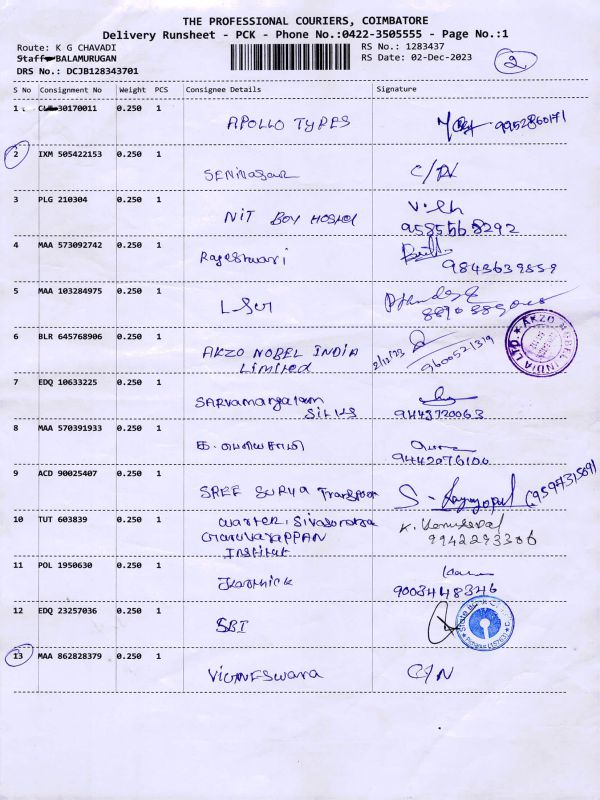 THE PROFESSIONAL COURIERS, COIMBATORE
Delivery Runsheet - PCK - Phone No.:0422-3505555 - Page No.:1
Route: K G CHAVADI
RS No.: 1283437
Staff BALAMURUGAN
RS Date: 02-Dec-2023
2
DRS No.: DCJB128343701
S No Consignment No Weight PCS Consignee Details Signature
1 30170011 0.250 1 APOLLO TYPES 9952860171
2 IXM 505422153 0.250 1 C/N
3 PLG 210304 0.250 1 NIT BOY HOSTEL
9585568292
4 MAA 573092742 0.250 1 Rajeshwari
9843639559
5 MAA 103284975 0.250 1
6 BLR 645768906 0.250 1 AKZO NOBEL INDIA Limited 2/12/23 9600521319
AKZO NOBEL INDIA LTD.
7 EDQ 10633225 0.250 1 SARvamangalam SILKS
9443720063
8 MAA 570391933 0.250 1
9442076100
9 ACD 90025407 0.250 1 SREE SURYA Transport
10 TUT 603839 0.250 1
9942293306
11 POL 1950630 0.250 1 Karthick
9003448346
12 EDQ 23257036 0.250 1 SBI
13 MAA 862828379 0.250 1 VIGNESwara C/N